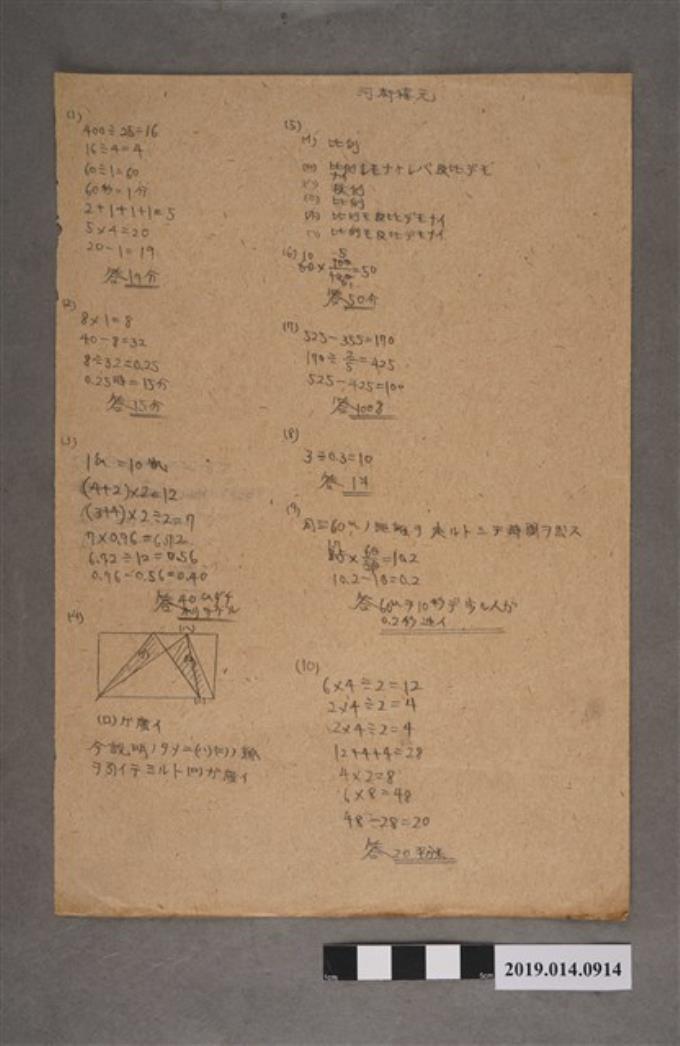 (1)
400÷25=16
16÷4=4
60÷1=60
60秒=1分
2+1+1+1=5
5×4=20
20-1=19
答19分
(2)
8×1=8
40-8=32
8÷32=0.25
0.25時=15分
答15分
(3)
(4+2)×2=12
(3+4)×2÷2=7
7×0.96=6.72
6.72÷12=0.56
0.96-0.56=0.40
答40
(4)
(ロ)ガ廣イ
今説明ノタメニ(ハ)(ニ)ノ線
ヲ引イテミルト(ロ)ガ廣イ
(5)
(イ) 比例
(ロ) 比例デモナケレバ反比デモ
ナイ
(ハ) 反例
(ニ) 比例
(ホ) 比例モ反比デモナイ
(ヘ) 比例モ反比デモナイ
(6)
=50
答50分
(7)
525-355=170
170÷2/5=425
525-425=100
答100g
(8)
3÷0.3=10
答
(9)
=10.2
10.2-10=0.2
答60mヲ10秒デ
0.2秒速イ
(10)
6×4÷2=12
2×4÷2=4
2×4÷2=4
12+4+4=28
4×2=8
6×8=48
48-28=20
答20平方米
1cm
5cm
2019.014.0914